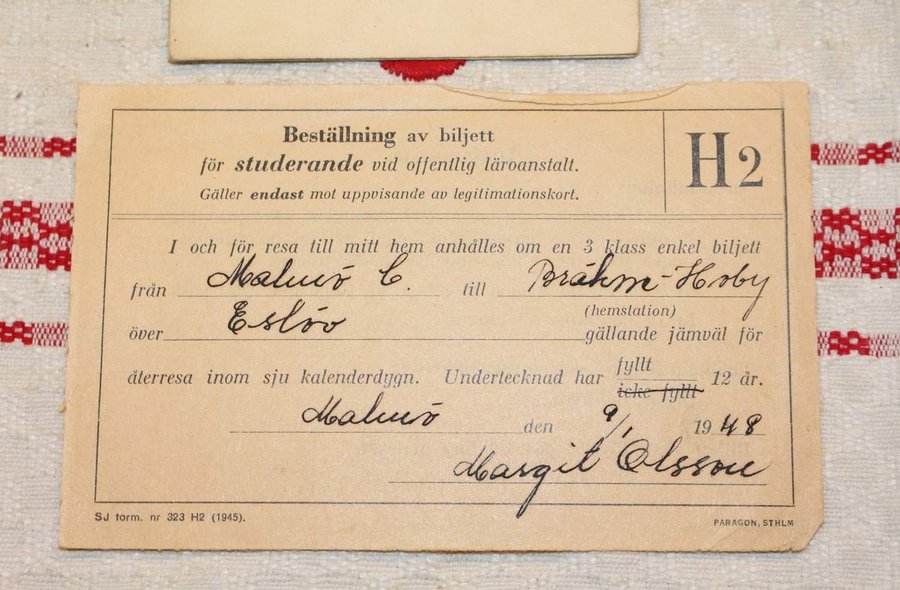 Beställning av biljett
för studerande vid offentlig läroanstalt.
Gäller endast mot uppvisande av legitimationskort.
H2
I och för resa till mitt hem anhålles om en 3 klass enkel biljett
från Malmö C. till Bräkm-Hoby
(hemstation)
över Eslöv gällande jämväl för
återresa inom sju kalenderdygn. Undertecknad har fyllt icke fyllt 12 år.
Malmö den 9/1 1948
Margit Olsson
SJ form. nr 323 H2 (1945).
PARAGON, STHLM